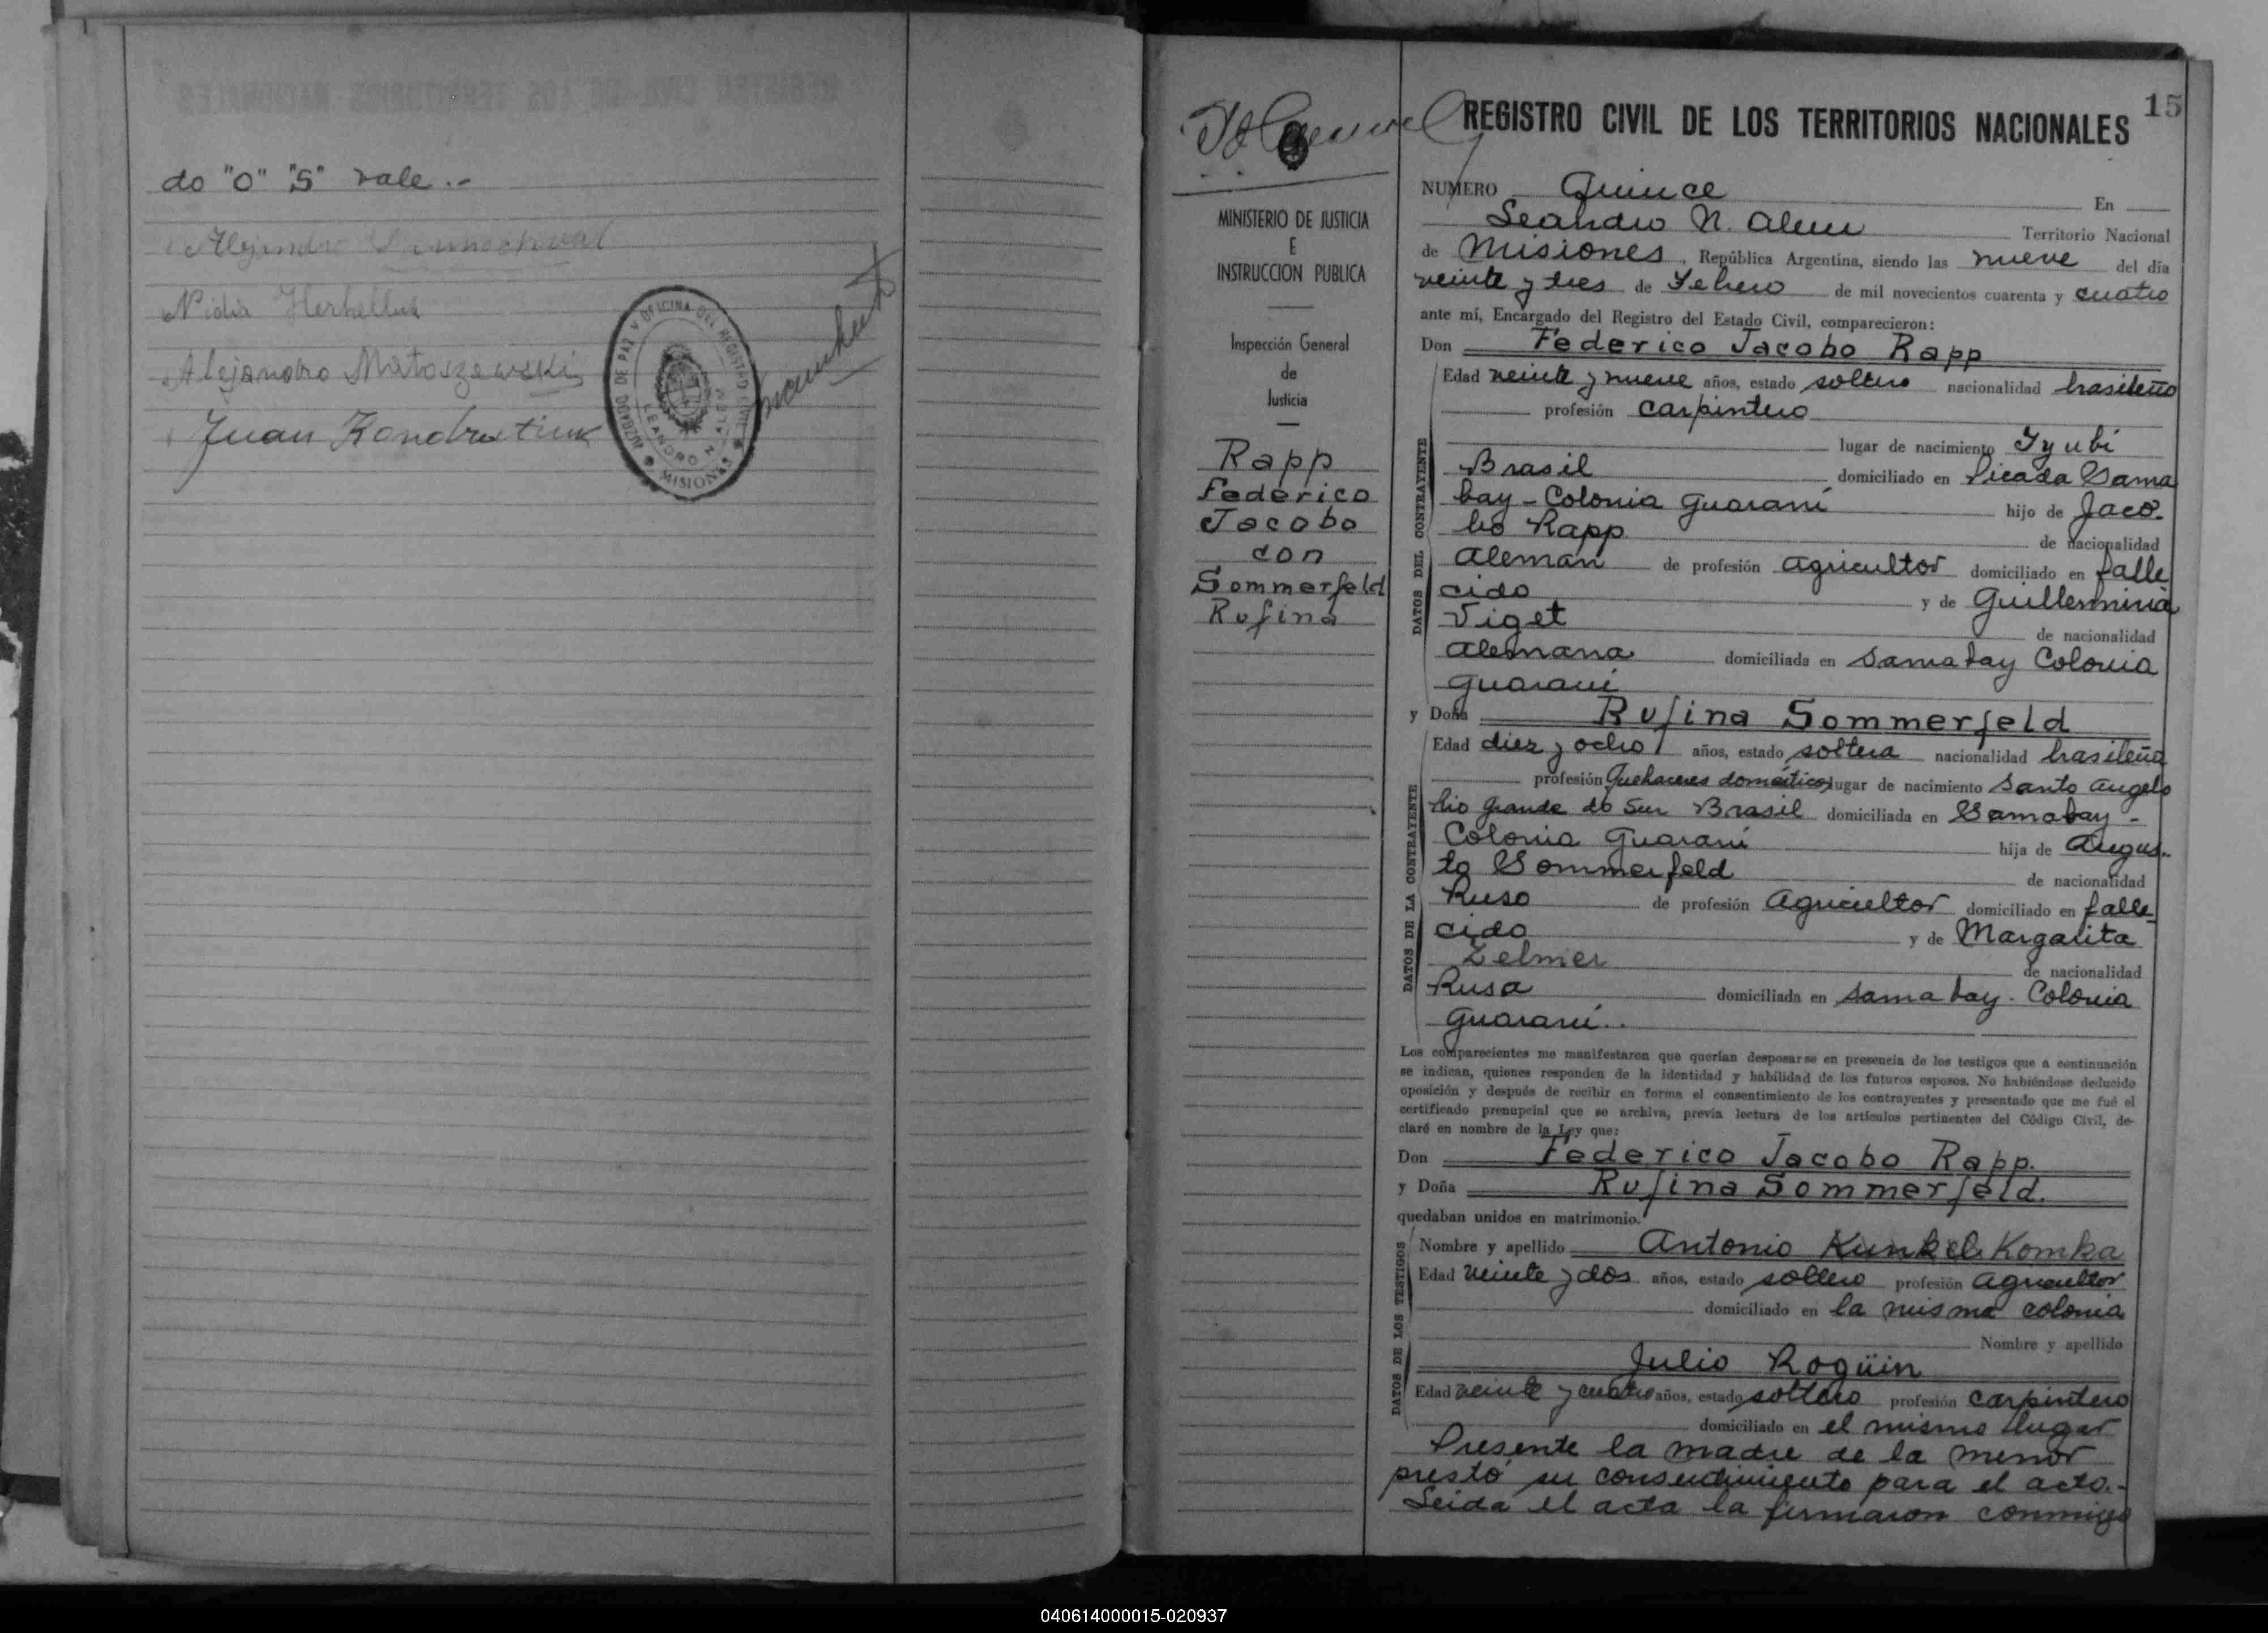 do "O" "S" vale.-
Alejandro
Nidia
Alejandro Matoszewski
Juan Kondratiuk
JUZGADO DE PAZ Y OFICINA DEL REGISTRO CIVIL
LEANDRO N. ALEM
MISIONES
15
REGISTRO CIVIL DE LOS TERRITORIOS NACIONALES
MINISTERIO DE JUSTICIA
E
INSTRUCCION PUBLICA
Inspección General
de
Justicia
Rapp
Federico
Jacobo
con
Sommerfeld
Rufina
NUMERO Quince En
Leandro N. Alem Territorio Nacional
de Misiones, República Argentina, siendo las nueve del día
veinte y tres de Febrero de mil novecientos cuarenta y cuatro
ante mí, Encargado del Registro del Estado Civil, comparecieron:
Don Federico Jacobo Rapp
DATOS DEL CONTRAYENTE
Edad veinte y nueve años, estado soltero nacionalidad brasileño
profesión carpintero
lugar de nacimiento Iyubi
Brasil domiciliado en Picada Sama
bay - Colonia Guaraní hijo de Jaco-
bo Rapp de nacionalidad
Alemán de profesión Agricultor domiciliado en falle
cido y de Guillermina
Viget de nacionalidad
Alemana domiciliada en Samabay Colonia
Guaraní
y Doña Rufina Sommerfeld
DATOS DE LA CONTRAYENTE
Edad diez y ocho años, estado soltera nacionalidad brasileña
profesión Quehaceres domésticos lugar de nacimiento Santo Angelo
Rio Grande do Sur Brasil domiciliada en Samabay -
Colonia Guaraní hija de Augus-
to Sommerfeld de nacionalidad
Ruso de profesión Agricultor domiciliado en falle-
cido y de Margarita
Zelmer de nacionalidad
Rusa domiciliada en Samabay - Colonia
Guaraní..
Los comparecientes me manifestaron que querían desposarse en presencia de los testigos que a continuación
se indican, quienes responden de la identidad y habilidad de los futuros esposos. No habiéndose deducido
oposición y después de recibir en forma el consentimiento de los contrayentes y presentado que me fué el
certificado prenupcial que se archiva, previa lectura de los artículos pertinentes del Código Civil, de-
claré en nombre de la Ley que:
Don Federico Jacobo Rapp.
y Doña Rufina Sommerfeld.
quedaban unidos en matrimonio.
DATOS DE LOS TESTIGOS
Nombre y apellido Antonio Kunkel Komka
Edad veinte y dos años, estado soltero profesión agricultor
domiciliado en la misma colonia
Nombre y apellido
Julio Rogüin
Edad veinte y cuatro años, estado soltero profesión carpintero
domiciliado en el mismo lugar
Presente la madre de la menor
prestó su consentimiento para el acto.-
Leida el acta la firmaron conmigo
040614000015-020937